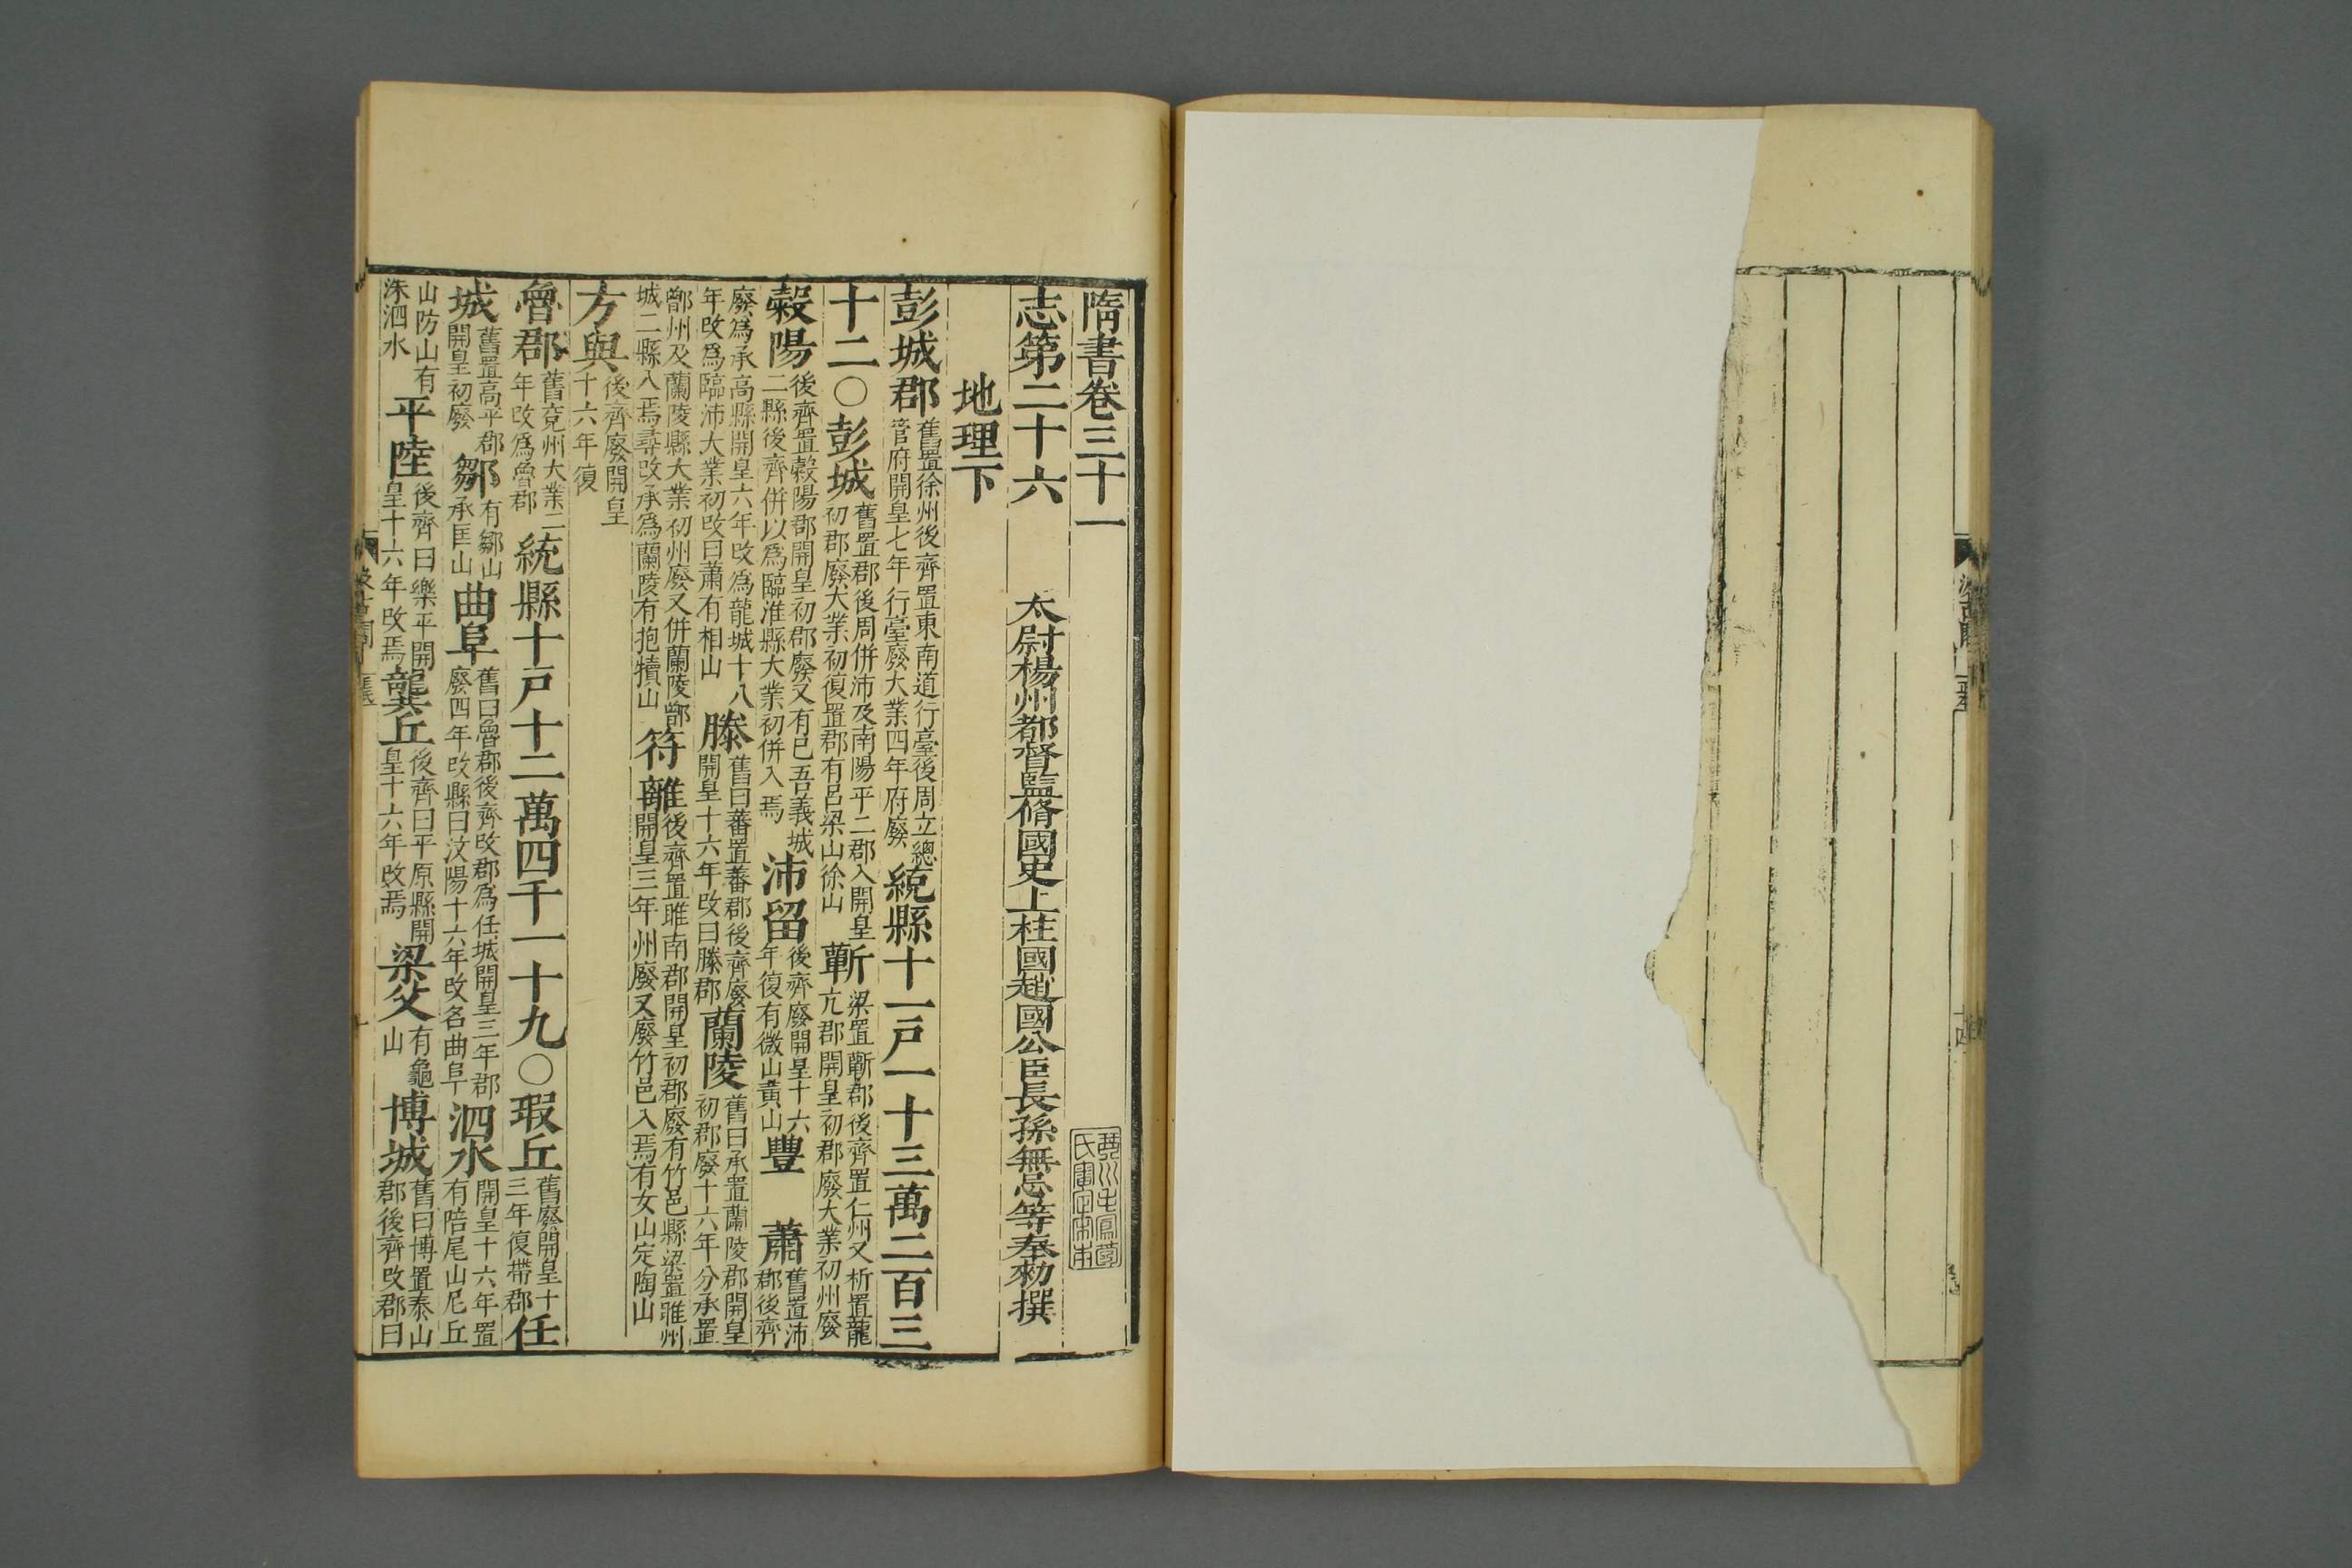 隋書卷三十一
志第二十六　太尉楊州都督監脩國史上柱國趙國公臣長孫無忌等奉勑撰
地理下
彭城郡舊置徐州後齊置東南道行臺後周立總管府開皇七年行臺廢大業四年府廢統縣十一戸一十三萬二百三
十二○彭城舊置郡後周併沛及南陽平二郡入開皇初郡廢大業初復置郡有呂梁山徐山蘄梁置蘄郡後齊置仁州又析置龍亢郡開皇初郡廢大業初州廢
穀陽後齊置穀陽郡開皇初郡廢又有巳吾義城二縣後齊併以爲臨淮縣大業初併入焉沛留後齊廢開皇十六年復有微山黄山豐　蕭舊置沛郡後齊
廢爲承高縣開皇六年改爲龍城十八年改爲臨沛大業初改曰蕭有相山滕舊曰蕃置蕃郡後齊廢開皇十六年改曰滕郡蘭陵舊曰承置蘭陵郡開皇初郡廢十六年分承置
鄫州及蘭陵縣大業初州廢又併蘭陵鄫城二縣入焉尋改承爲蘭陵有抱犢山符離後齊置睢南郡開皇初郡廢有竹邑縣梁置睢州開皇三年州廢又廢竹邑入焉有女山定陶山
方與後齊廢開皇十六年復
魯郡舊兗州大業二年改爲魯郡統縣十戸十二萬四千一十九○瑕丘舊廢開皇十三年復帶郡任
城舊置高平郡開皇初廢鄒有鄒山承匡山曲阜舊曰魯郡後齊改郡爲任城開皇三年郡廢四年改縣曰汶陽十六年改名曲阜泗水開皇十六年置有陪尾山尼丘
山防山有洙泗水平陸後齊曰樂平開皇十六年改焉龔丘後齊曰平原縣開皇十六年改焉梁父有龜山博城舊曰博置泰山郡後齊改郡曰